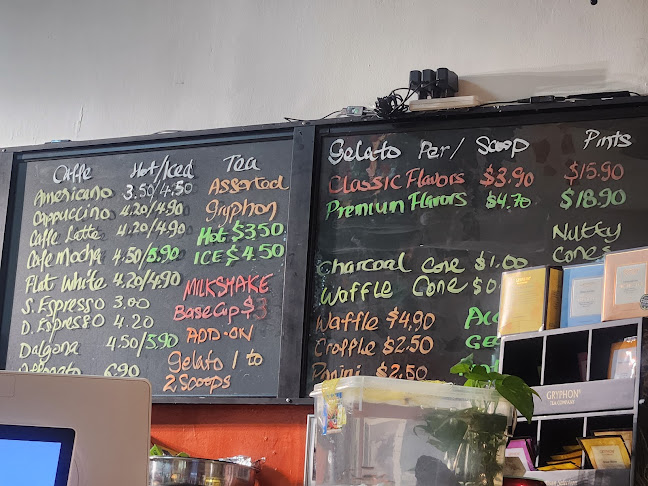 Caffe Hot/Iced
Americano 3.50/4.50
Cappuccino 4.20/4.90
Caffe Latte 4.20/4.90
Cafe Mocha 4.50/5.90
Flat White 4.20/4.90
S. Espresso 3.00
D. Espresso 4.20
Dalgona 4.50/5.90
Affogato 6.90
Tea
Assorted
Gryphon
Hot $3.50
ICE $4.50
MILKSHAKE
Base Cup $3
ADD-ON
Gelato 1 to
2 Scoops
Gelato Per/ Scoop Pints
Classic Flavors $3.90 $15.90
Premium Flavors $4.70 $18.90
Nutty
Cones
Charcoal Cone $1.00
Waffle Cone $0
Waffle $4.90
Croffle $2.50
Panini $2.50
GRYPHON
TEA COMPANY